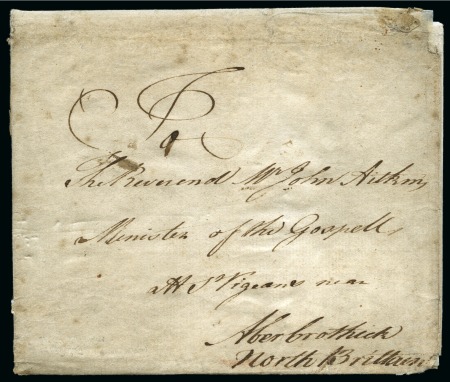 To
The Reverend Mr John Aitkin
Minister of the Gospell
At St Vigeans near
Aberbrothick
North Brittain